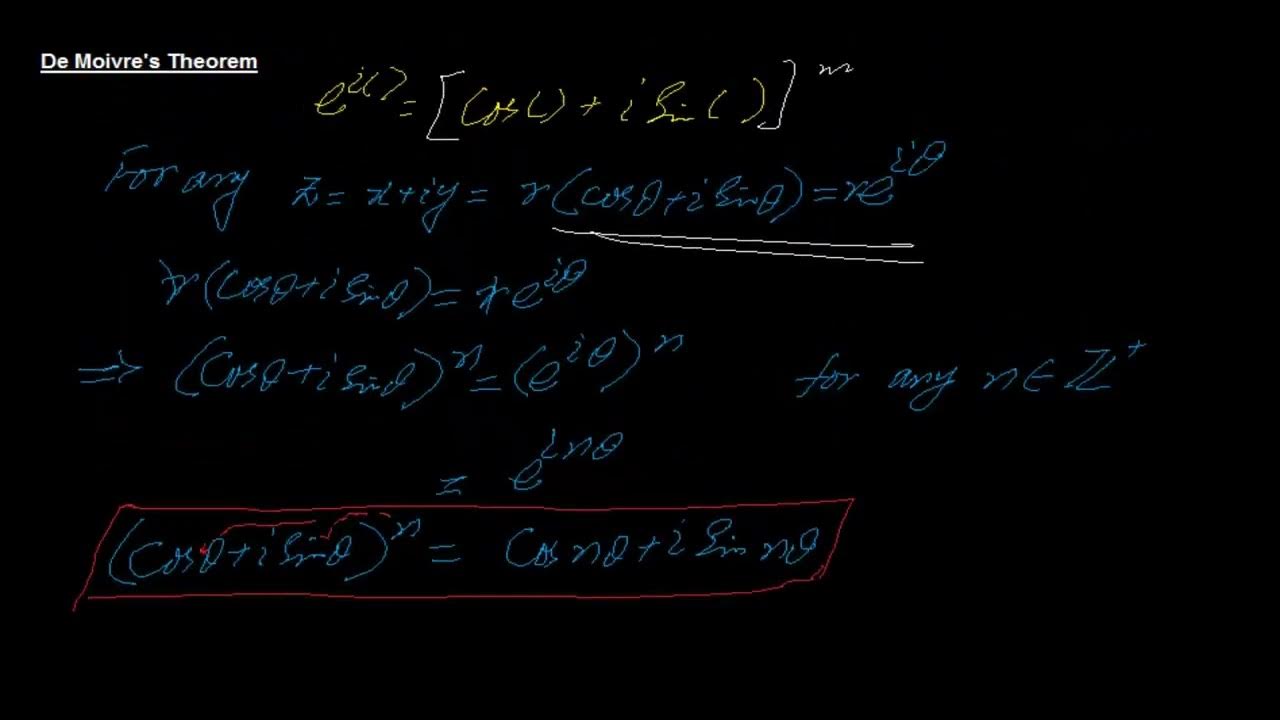 De Moivre's Theorem
e^{i( )} = [Cos( ) + i Sin( )]^n
For any z = x+iy = r(cosθ+i Sinθ) = re^{iθ}
r(Cosθ+i Sinθ) = re^{iθ}
⇒ (Cosθ+i Sinθ)^n = (e^{iθ})^n for any n∈ℤ^+
= e^{inθ}
(Cosθ+i Sinθ)^n = Cos nθ + i Sin nθ